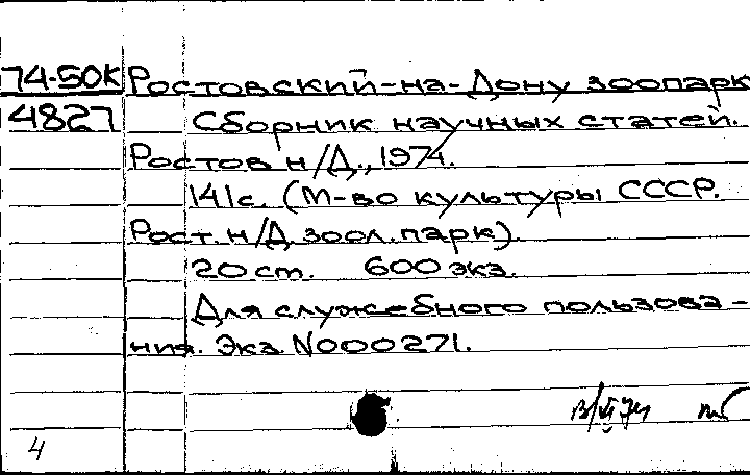 74-50К Ростовский-на-Дону зоопарк
4827 Сборник научных статей.
Ростов н/Д., 1974.
141с. (М-во культуры СССР.
Рост. н/Д зоол. парк).
20 ст. 600 экз.
Для служебного пользова-
ния. Экз. N000271.
4